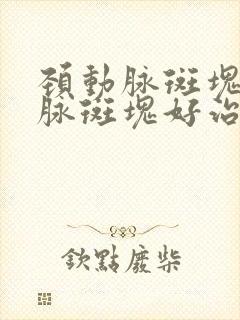 頚動脉斑塊
脉斑塊好治
欽點廢柴